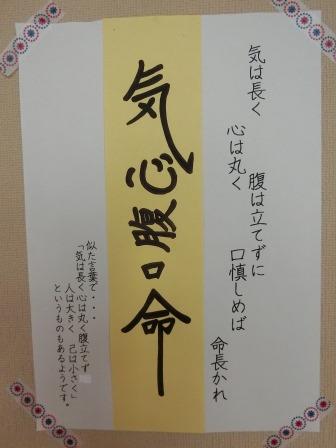 気は長く
心は丸く
腹は立てずに
口慎しめば
命長かれ
気心腹口命
似た言葉で・・・
「気は長く心は丸く腹立てず
人は大きく 己は小さく」
というものもあるようです。